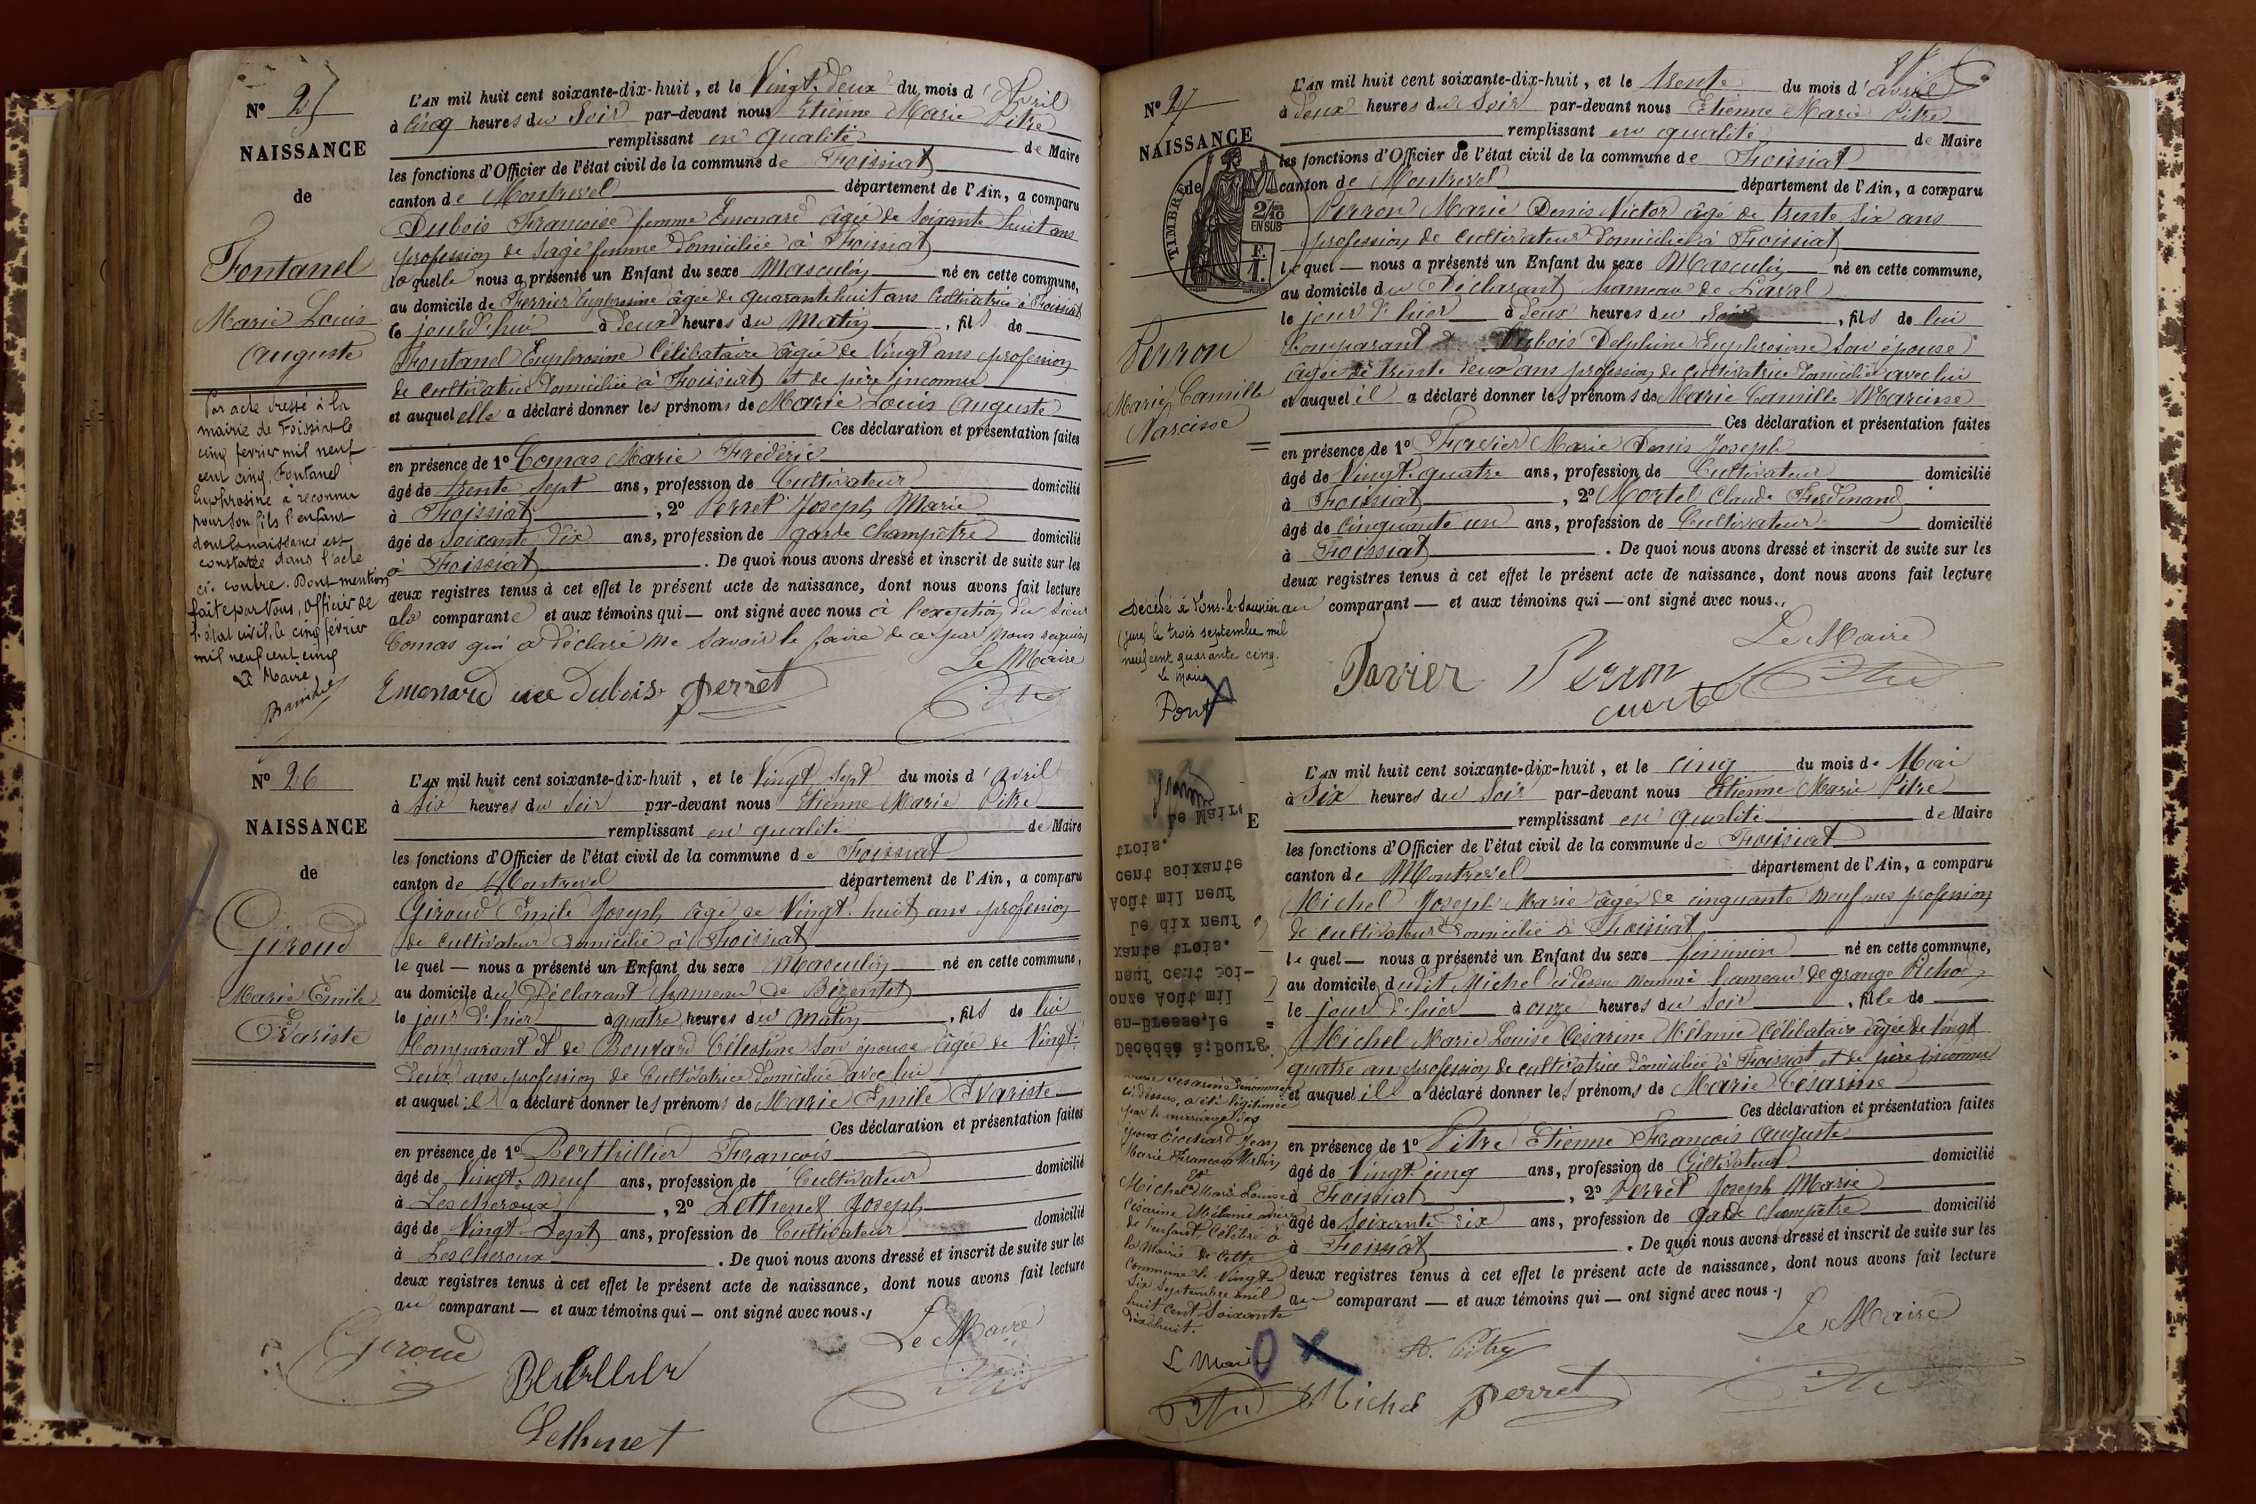 N° 25
NAISSANCE
de
Fontanel
Marie Louis
Auguste
Par acte dressé à la
mairie de Foissiat le
cinq février mil neuf
cent cinq, Fontanel
Euphrosine a reconnu
pour son fils l'enfant
dont la naissance est
constatée dans l'acte
ci-contre. Dont mention
faite par Nous, Officier de
l'état civil, le cinq février
mil neuf cent cinq
Le Maire
L'AN mil huit cent soixante-dix-huit, et le Vingt-deux du mois d'Avril
à Cinq heures du Soir par-devant nous Etienne Marie Pitre
remplissant en qualité de Maire
les fonctions d'Officier de l'état civil de la commune de Foissiat
canton de Montrevel département de l'Ain, a comparu
Dubois Françoise femme Emonard âgée de soixante huit ans
profession de sage femme domiciliée à Foissiat
laquelle nous a présenté un Enfant du sexe Masculin né en cette commune,
au domicile de Ferrier Euphrosine âgée de quarante huit ans Cultivatrice à Foissiat
le jourd'hui à deux heures du Matin, fils de
Fontanel Euphrosine Célibataire âgée de Vingt ans profession
de cultivatrice domiciliée à Foissiat et de père inconnu
et auquel elle a déclaré donner les prénoms de Marie Louis Auguste
Ces déclaration et présentation faites
en présence de 1° Comas Marie Frédéric
âgé de trente sept ans, profession de Cultivateur domicilié
à Foissiat, 2° Perret Joseph Marie
âgé de soixante dix ans, profession de garde champêtre domicilié
à Foissiat. De quoi nous avons dressé et inscrit de suite sur les
deux registres tenus à cet effet le présent acte de naissance, dont nous avons fait lecture
à la comparante et aux témoins qui — ont signé avec nous à l'exception du sieur
Comas qui a déclaré ne savoir le faire de ce par nous requis
Le Maire
Emonard née Dubois Perret Pitre
N° 26
NAISSANCE
de
Giroud
Marie Emile
Evariste
L'AN mil huit cent soixante-dix-huit, et le Vingt sept du mois d'Avril
à Six heures du Soir par-devant nous Etienne Marie Pitre
remplissant en qualité de Maire
les fonctions d'Officier de l'état civil de la commune de Foissiat
canton de Montrevel département de l'Ain, a comparu
Giroud Emile Joseph âgé de Vingt-huit ans profession
de cultivateur domicilié à Foissiat
lequel — nous a présenté un Enfant du sexe Masculin né en cette commune,
au domicile du Déclarant hameau de
le jour d'hier à quatre heures du matin, fils de lui
Comparant et de Bouvard Célestine son épouse âgée de Vingt-
deux ans profession de Cultivatrice domiciliée avec lui
et auquel il a déclaré donner les prénoms de Marie Emile Evariste
Ces déclaration et présentation faites
en présence de 1° Berthillier François
âgé de Vingt-neuf ans, profession de Cultivateur domicilié
à Lescheroux, 2° Lethenet Joseph
âgé de Vingt-Sept ans, profession de Cultivateur domicilié
à Lescheroux. De quoi nous avons dressé et inscrit de suite sur les
deux registres tenus à cet effet le présent acte de naissance, dont nous avons fait lecture
au comparant — et aux témoins qui — ont signé avec nous.
Le Maire
Giroud
Lethenet
N° 27
NAISSANCE
de
TIMBRE
2/10
EN SUS
F.
1.
Perron
Marie Camille
Narcisse
Décédé à Lons-le-Saunier
(Jura) le trois septembre mil
neuf cent quarante cinq.
Le Maire
Pont
L'AN mil huit cent soixante-dix-huit, et le trente du mois d'avril
à deux heures du Soir par-devant nous Etienne Marie Pitre
remplissant en qualité de Maire
les fonctions d'Officier de l'état civil de la commune de Foissiat
canton de Montrevel département de l'Ain, a comparu
Perron Marie Denis Victor âgé de trente six ans
profession de cultivateur domicilié à Foissiat
lequel — nous a présenté un Enfant du sexe Masculin né en cette commune,
au domicile du Déclarant hameau de Laval
le jour d'hier à deux heures du Soir, fils de lui
Comparant Dubois Delphine Euphrosine son épouse
âgée de trente deux ans profession de cultivatrice domiciliée avec lui
et auquel il a déclaré donner les prénoms de Marie Camille Narcisse
Ces déclaration et présentation faites
en présence de 1° Favier Marie Denis Joseph
âgé de Vingt-quatre ans, profession de Cultivateur domicilié
à Foissiat, 2° Mortel Claude Ferdinand
âgé de Cinquante un ans, profession de Cultivateur domicilié
à Foissiat. De quoi nous avons dressé et inscrit de suite sur les
deux registres tenus à cet effet le présent acte de naissance, dont nous avons fait lecture
au comparant — et aux témoins qui — ont signé avec nous.
Le Maire
Favier Perron Mortel Pitre
Décédée à: Bourg-
en-Bresse, le
onze Août mil
neuf cent soi-
xante trois.
Le dix neuf
Août mil neuf
cent soixante
trois.
Le Maire
E
Marie Césarine dénommée
ci-dessus, a été légitimée
par le mariage des
époux Cochard Jean
Marie François
Et
Michel Marie Louise
Césarine Mélanie mère
de l'enfant, célébré à
la Mairie de cette
Commune le Vingt-
Six Septembre mil
huit cent soixante
dix huit.
L. Maire
Pitre
L'AN mil huit cent soixante-dix-huit, et le cinq du mois de Mai
à Six heures du Soir par-devant nous Etienne Marie Pitre
remplissant en qualité de Maire
les fonctions d'Officier de l'état civil de la commune de Foissiat
canton de Montrevel département de l'Ain, a comparu
Michel Joseph Marie âgé de cinquante neuf ans profession
de cultivateur domicilié à Foissiat
lequel — nous a présenté un Enfant du sexe féminin né en cette commune,
au domicile dudit Michel dessus nommé hameau de grange Pichod
le jour d'hier à onze heures du Soir, fille de
Michel Marie Louise Césarine Mélanie Célibataire âgée de Vingt
quatre ans profession de cultivatrice domiciliée à Foissiat et de père inconnu
et auquel il a déclaré donner les prénoms de Marie Césarine
Ces déclaration et présentation faites
en présence de 1° Pitre Etienne François Auguste
âgé de Vingt-cinq ans, profession de Cultivateur domicilié
à Foissiat, 2° Perret Joseph Marie
âgé de soixante dix ans, profession de garde champêtre domicilié
à Foissiat. De quoi nous avons dressé et inscrit de suite sur les
deux registres tenus à cet effet le présent acte de naissance, dont nous avons fait lecture
au comparant — et aux témoins qui — ont signé avec nous.
Le Maire
Michel Perret Pitre